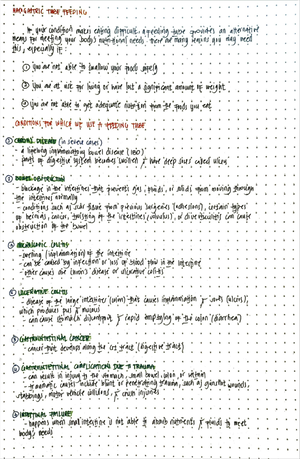 NASOGASTRIC TUBE FEEDING
If your condition makes eating difficult, a feeding tube provides an alternative
means for meeting your body's nutritional needs. There are many reasons you may need
this, especially if:
① You are not able to swallow your foods safely
② You are not or have lost a significant amount of weight
③ You are not able to get adequate nutrition from the foods you eat
CONDITIONS FOR WHICH WE USE A FEEDING TUBE
① CROHN'S DISEASE (in severe cases)
- a lifelong inflammatory bowel disease (IBD)
- parts of digestive system become swollen & have deep sores called ulcers
② BOWEL OBSTRUCTION
- blockage in the intestines that prevents gas, fluids, or solids from moving through
the intestines normally
- conditions such as scar tissue from previous surgeries (adhesions), certain types
of hernias, cancer, twisting of the intestines (volvulus), or diverticulitis can cause
obstruction of the bowel
③ ISCHAEMIC COLITIS
- swelling (inflammation) of the intestine
- can be caused by infection or loss of blood flow in the intestine
- other causes are Crohn's disease or ulcerative colitis
④ ULCERATIVE COLITIS
- disease of the large intestines (colon) that causes inflammation & sores (ulcers),
which produces pus & mucus
- can cause stomach discomfort & rapid emptying of the colon (diarrhea)
⑤ GASTROINTESTINAL CANCER
- cancer that develops along the GI tract (digestive tract)
⑥ GASTROINTESTINAL COMPLICATIONS DUE TO TRAUMA
- can result in injury to the stomach, small bowel, colon, or rectum
- traumatic causes include blunt or penetrating trauma, such as gunshot wounds,
stabbings, motor vehicle collisions, & crush injuries
⑦ INTESTINAL FAILURE
- happens when small intestine is not able to absorb nutrients & fluids to meet
body's needs